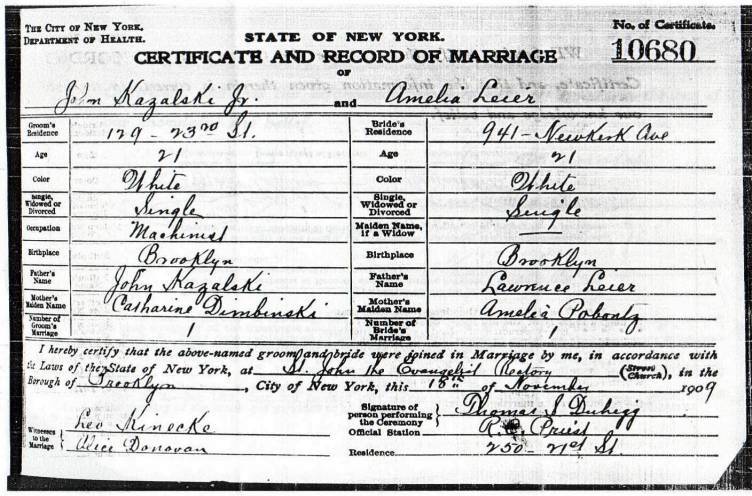 THE CITY OF NEW YORK.
DEPARTMENT OF HEALTH.
STATE OF NEW YORK.
No. of Certificate.
CERTIFICATE AND RECORD OF MARRIAGE
10680
OF
John Kazalski Jr. and Amelia Leier
Groom's Residence 129 - 23rd St. Bride's Residence 941 - Newkirk Ave
Age 21 Age 21
Color White Color White
Single, Widowed or Divorced Single Single, Widowed or Divorced Single
Occupation Machinist Maiden Name, if a Widow —
Birthplace Brooklyn Birthplace Brooklyn
Father's Name John Kazalski Father's Name Lawrence Leier
Mother's Maiden Name Catharine Dimbinski Mother's Maiden Name Amelia Pobontz
Number of Groom's Marriage 1 Number of Bride's Marriage 1
I hereby certify that the above-named groom and bride were joined in Marriage by me, in accordance with
the Laws of the State of New York, at St. John the Evangelist Rectory (Street Church), in the
Borough of Brooklyn, City of New York, this 18th of November 1909
Signature of person performing the Ceremony Thomas S Duhigg
Witnesses to the Marriage Leo Minecke
Alice Donovan
Official Station R. C. Priest
Residence 250 - 21st St.